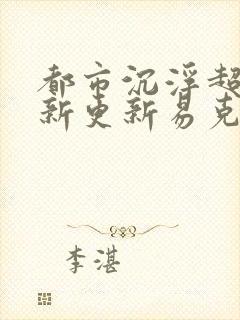 都市沉浮超
新更新易克
李湛